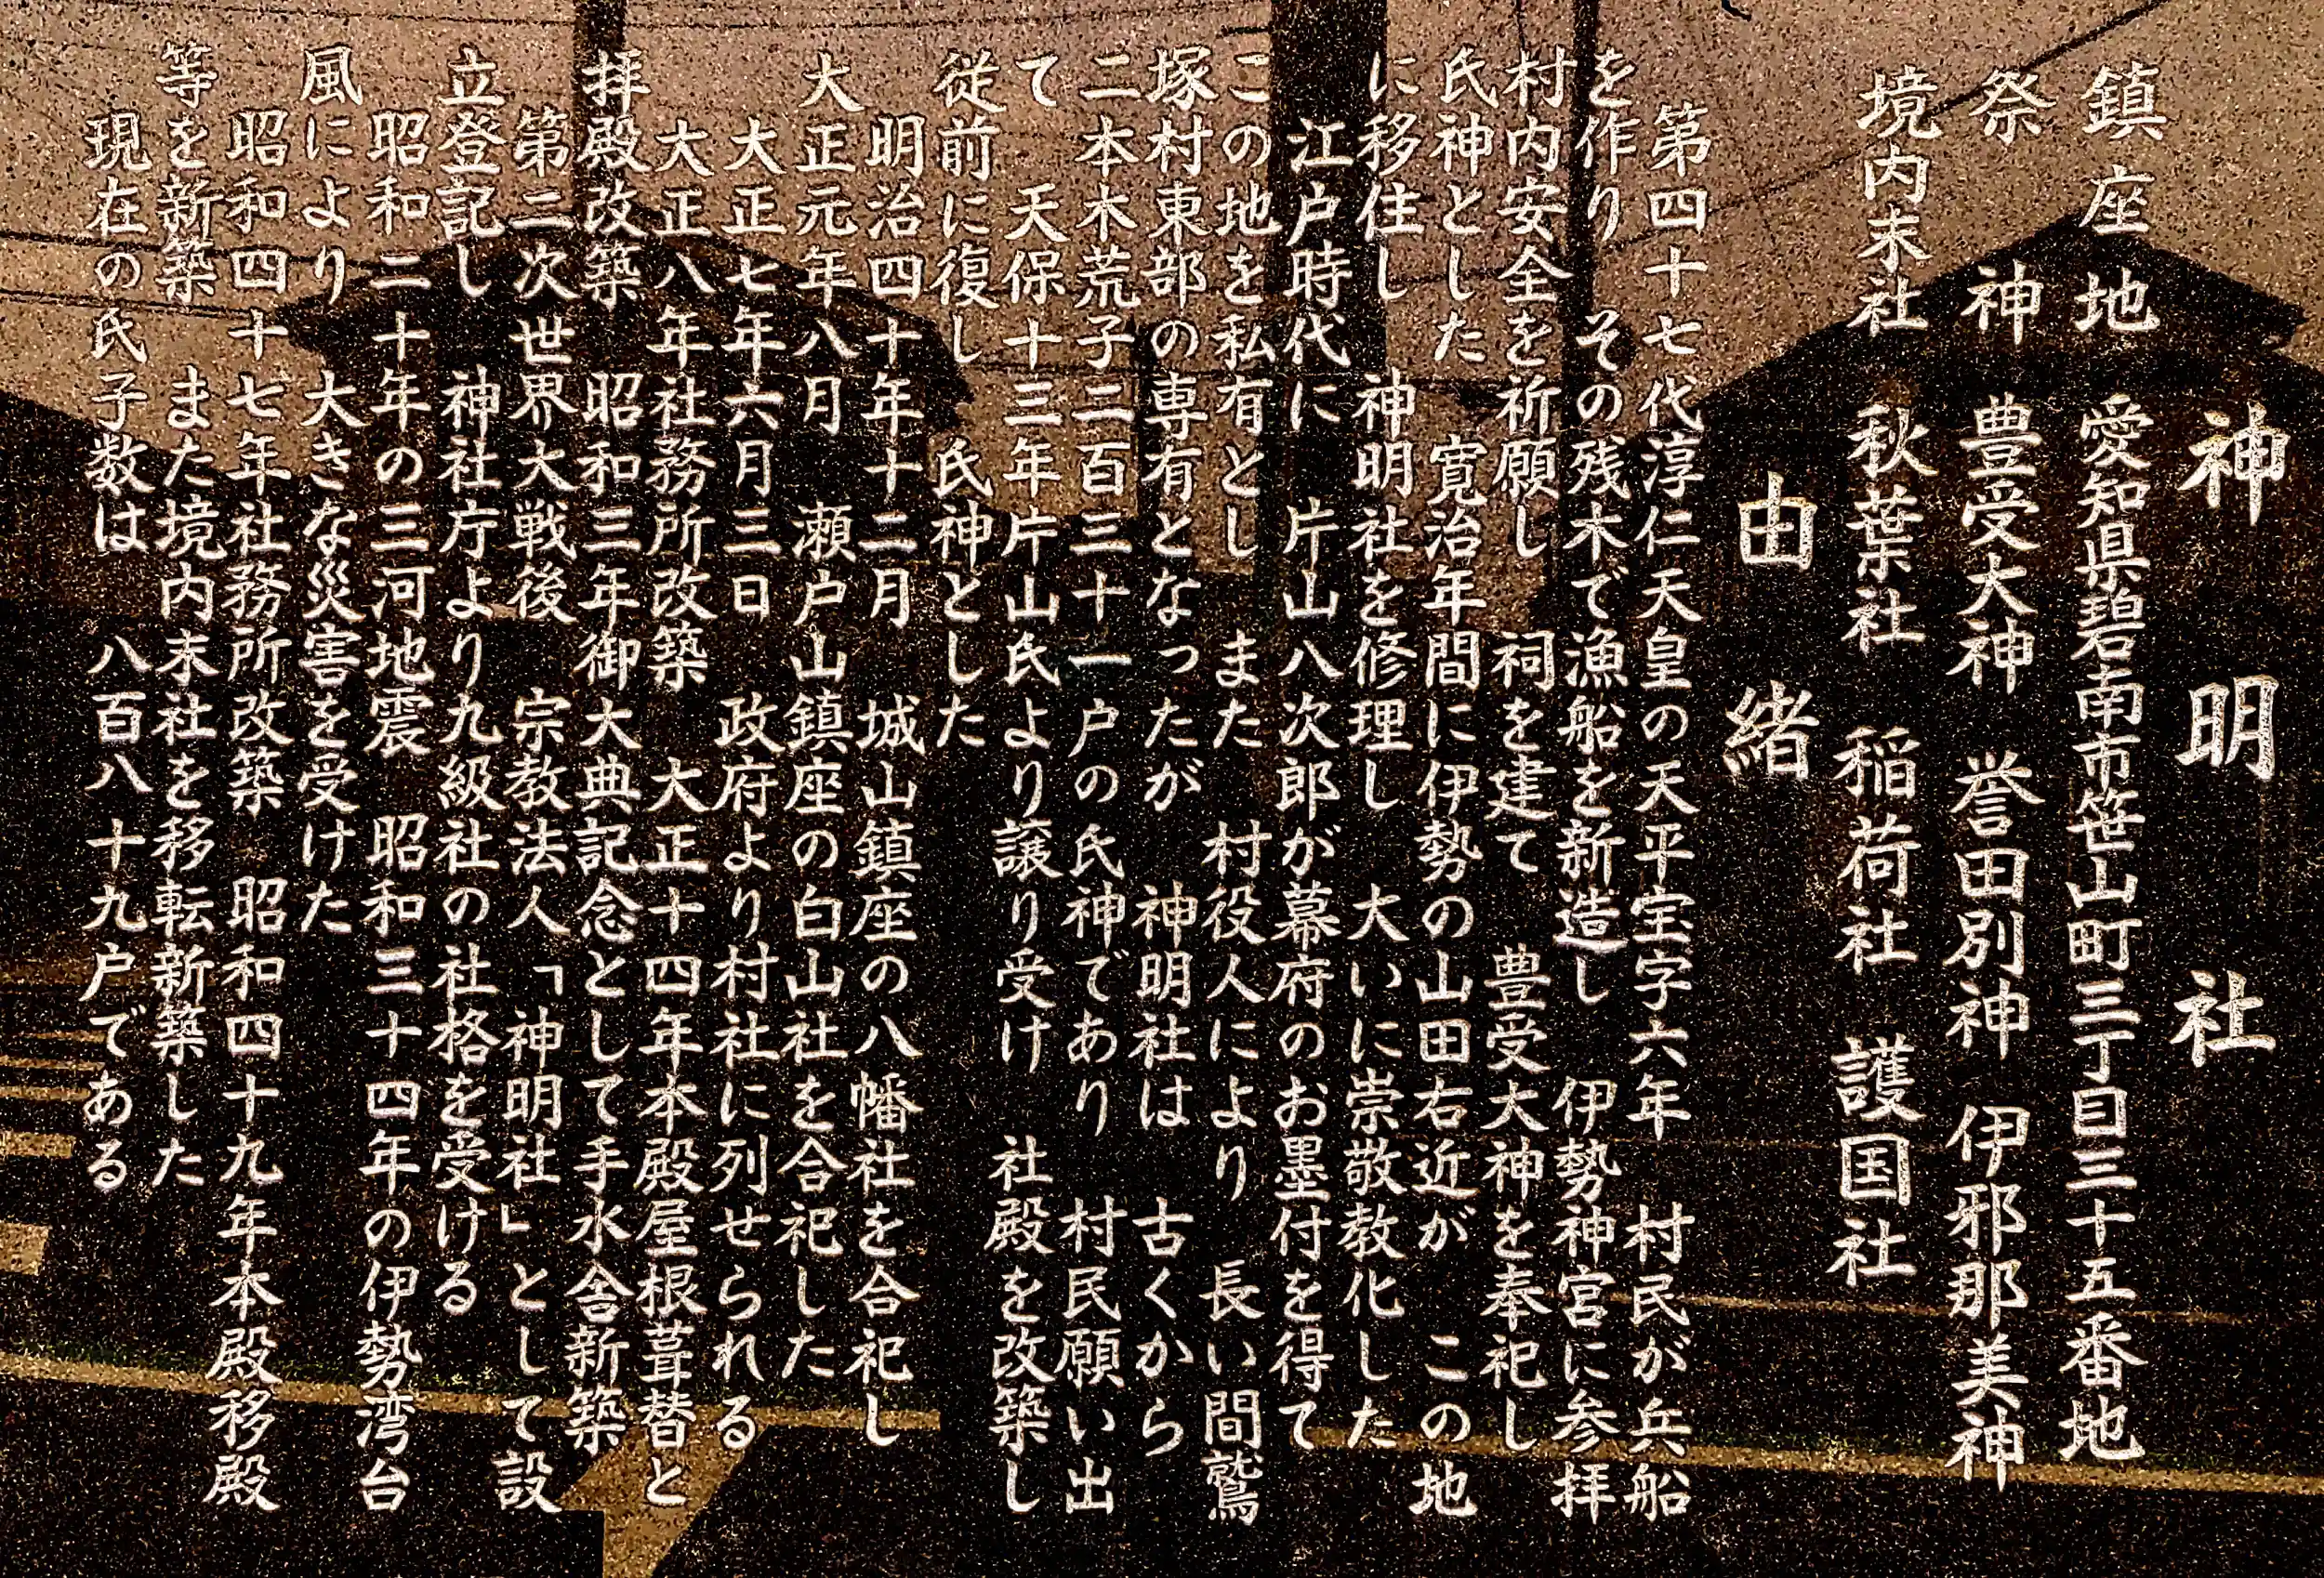 神明社
鎮座地 愛知県碧南市笹山町三丁目三十五番地
祭神 豊受大神 誉田別神 伊邪那美神
境内末社 秋葉社 稲荷社 護国社
由緒
第四十七代淳仁天皇の天平宝字六年 村民が兵船
を作り その残木で漁船を新造し 伊勢神宮に参拝
村内安全を祈願し 祠を建て 豊受大神を奉祀し
氏神とした 寛治年間に伊勢の山田右近が この地
に移住し 神明社を修理し 大いに崇敬教化した
江戸時代に 片山八次郎が幕府のお墨付を得て
この地を私有とし また 村役人により 長い間鷲
塚村東部の専有となったが 神明社は 古くから
二本木荒子二百三十一戸の氏神であり 村民願い出
て 天保十三年片山氏より譲り受け 社殿を改築し
従前に復し 氏神とした
明治四十年十二月 城山鎮座の八幡社を合祀し
大正元年八月 瀬戸山鎮座の白山社を合祀した
大正七年六月三日 政府より村社に列せられる
大正八年社務所改築 大正十四年本殿屋根葺替と
拝殿改築 昭和三年御大典記念として手水舎新築
第二次世界大戦後 宗教法人「神明社」として設
立登記し 神社庁より九級社の社格を受ける
昭和二十年の三河地震 昭和三十四年の伊勢湾台
風により 大きな災害を受けた
昭和四十七年社務所改築 昭和四十九年本殿移殿
等を新築 また境内末社を移転新築した
現在の氏子数は 八百八十九戸である